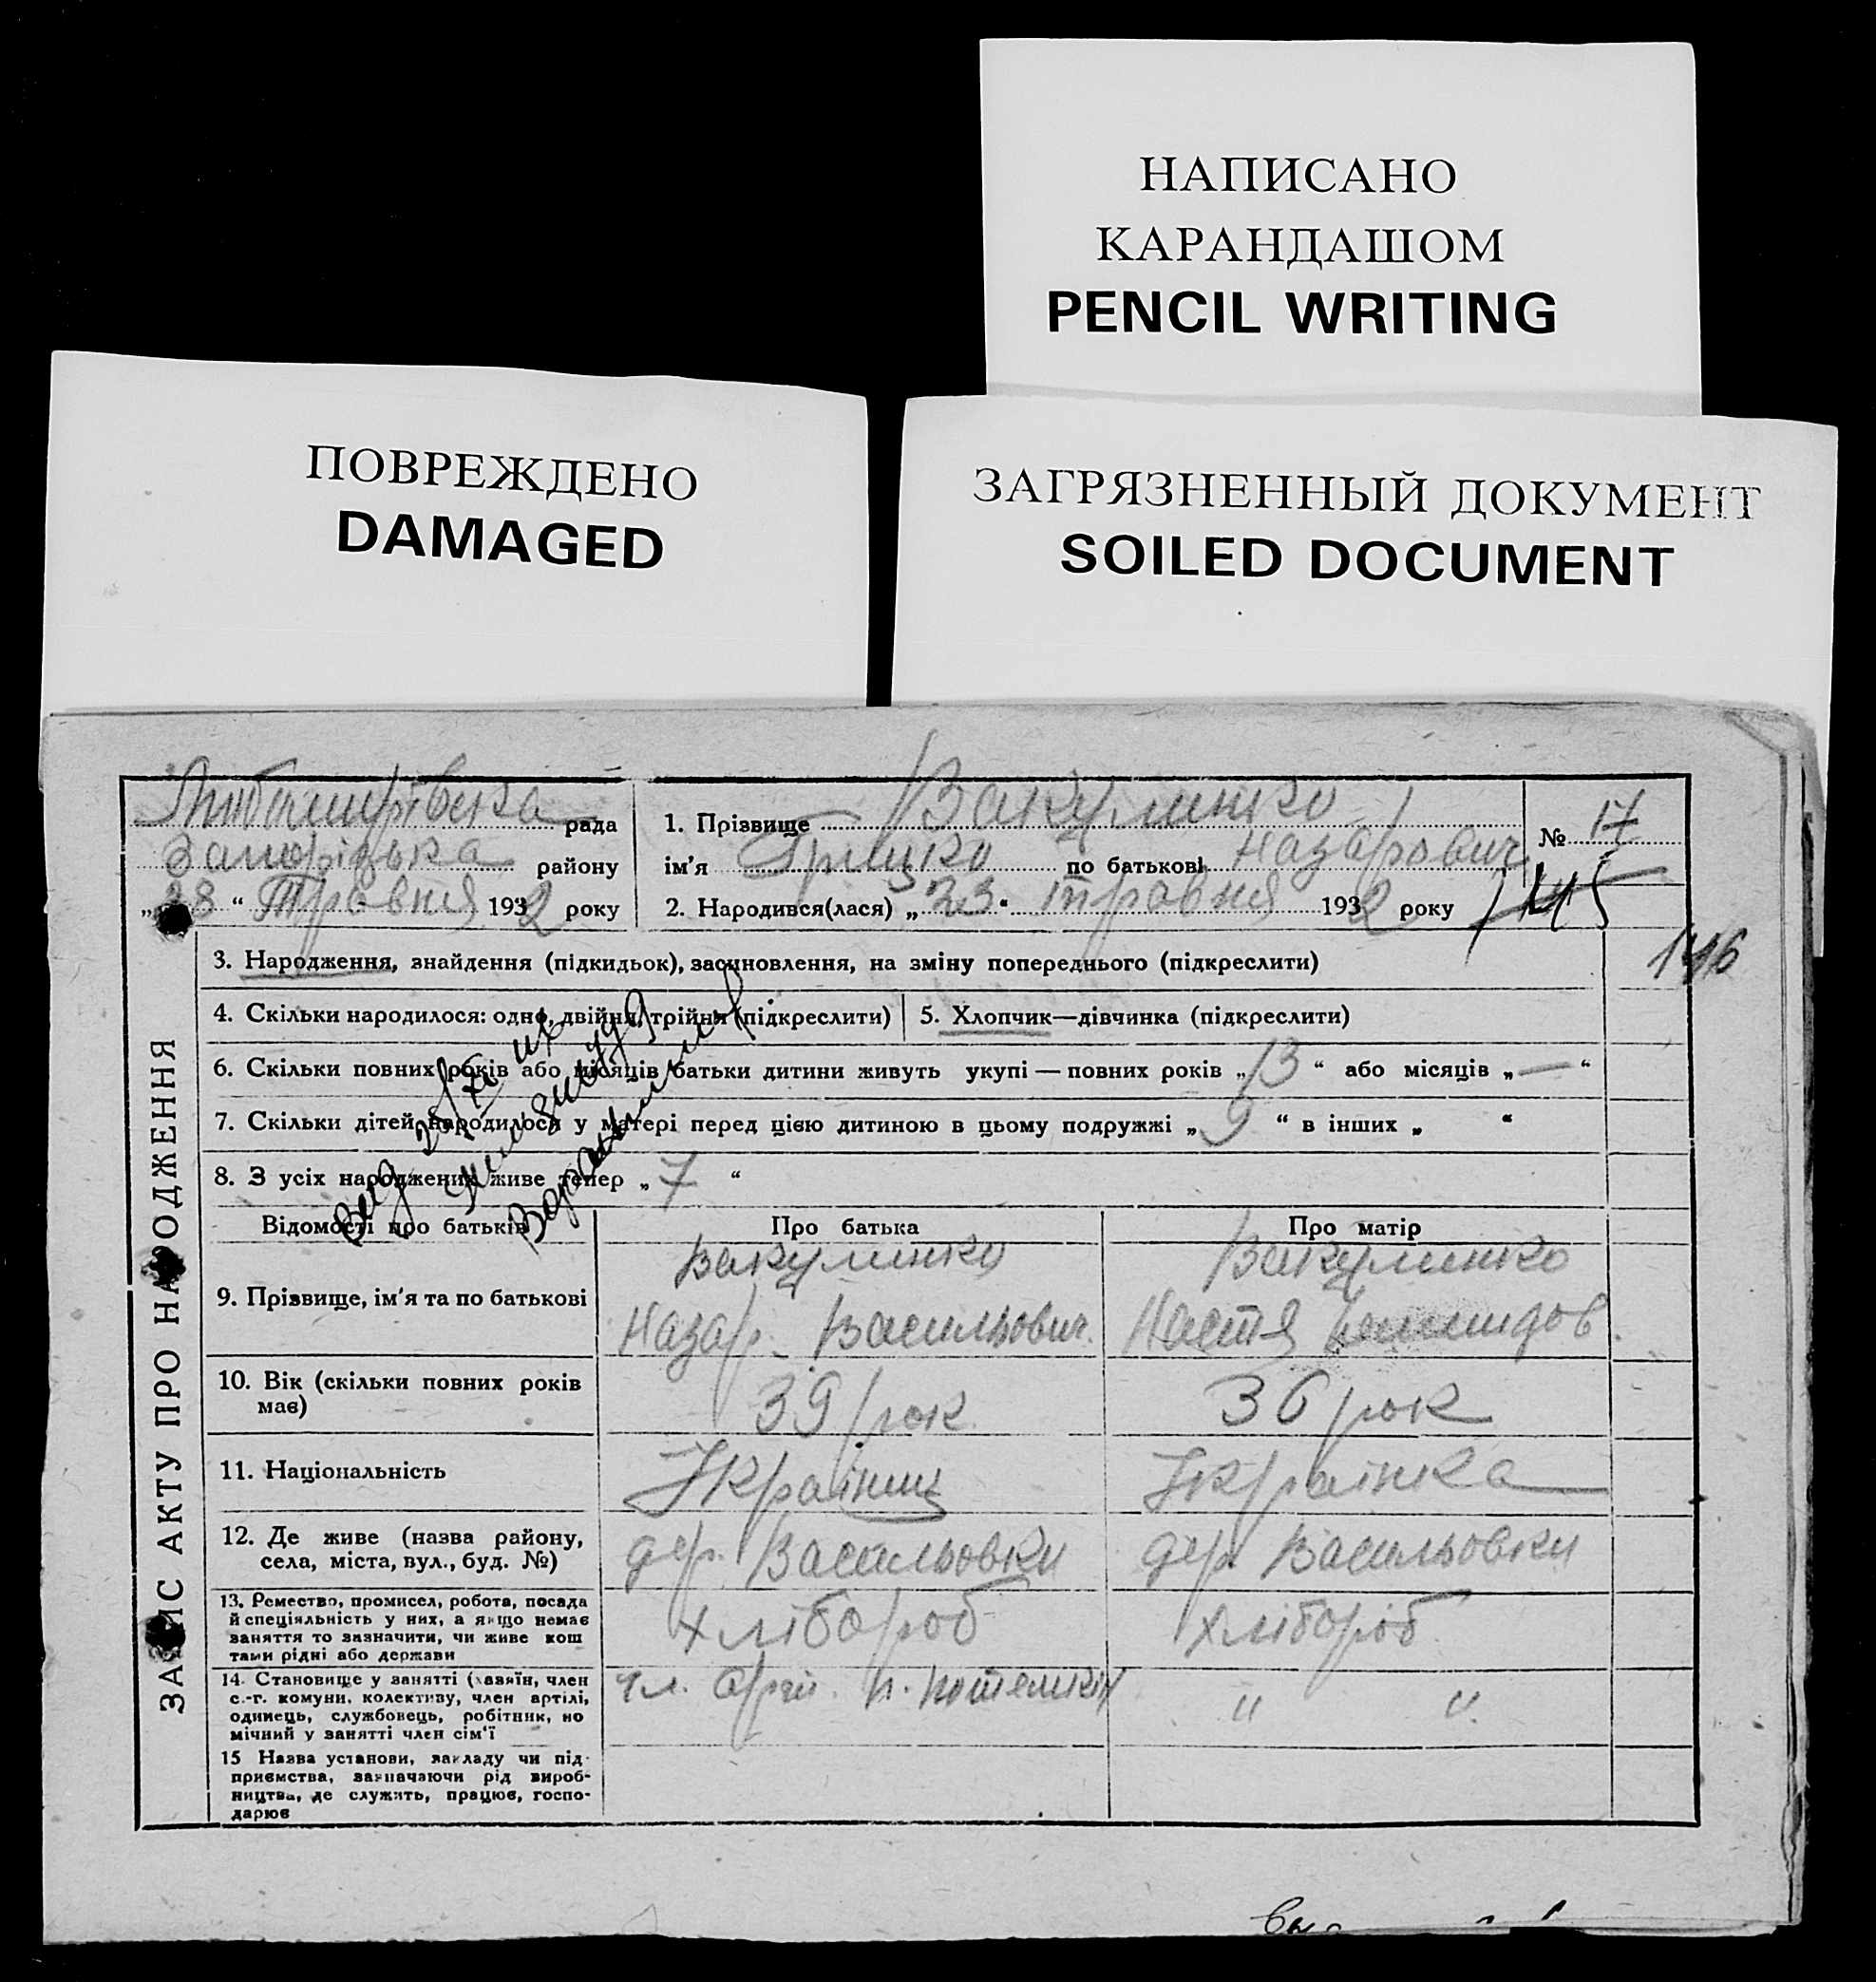 НАПИСАНО
КАРАНДАШОМ
PENCIL WRITING
ПОВРЕЖДЕНО
DAMAGED
ЗАГРЯЗНЕННЫЙ ДОКУМЕНТ
SOILED DOCUMENT
ЗАПИС АКТУ ПРО НАРОДЖЕННЯ
рада
району
„28“ Травня 1932 року
1. Прізвище Вакуленко
ім'я Грицко по батькові Назарович
№ 17
2. Народився(лася) „23“ травня 1932 року
145
146
3. Народження, знайдення (підкидьок), засиновлення, на зміну попереднього (підкреслити)
4. Скільки народилося: одно, двійня, трійня (підкреслити)
5. Хлопчик—дівчинка (підкреслити)
6. Скільки повних років або місяців батьки дитини живуть укупі — повних років „13“ або місяців „—“
7. Скільки дітей народилося у матері перед цією дитиною в цьому подружжі „9“ в інших „ “
8. З усіх народжених живе тепер „7“
Відомості про батьків
Про батька
Про матір
9. Прізвище, ім'я та по батькові
Вакуленко
Назар Васильович
Вакуленко
Настя
10. Вік (скільки повних років має)
39 рок
36 рок
11. Національність
Українец
Українка
12. Де живе (назва району,
села, міста, вул., буд. №)
дер. Васильовки
дер. Васильовки
13. Ремество, промисел, робота, посада
й спеціяльність у них, а якщо немає
заняття то зазначити, чи живе кош
тами рідні або держави
хлібороб
хлібороб
14. Становище у занятті (хазяїн, член
с.-г. комуни, колективу, член артілі,
одинець, службовець, робітник, но
мічний у занятті член сім'ї
чл. арті. п. Потемкін
" "
15 Назва установи, закладу чи під-
приємства, зазначаючи рід вироб-
ництва, де служить, працює, госпо-
дарює